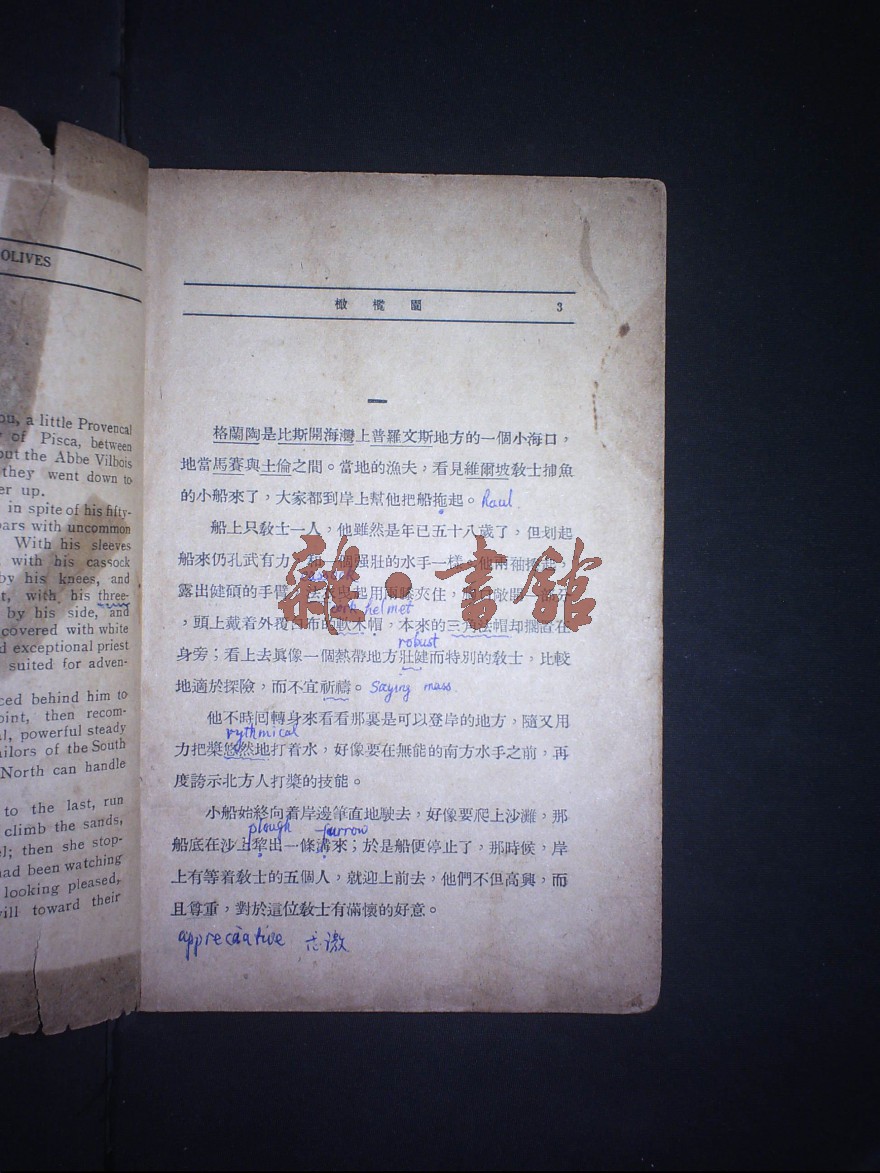 OLIVES
ou, a little Provencal
of Pisca, between
out the Abbe Vilbois
they went down to
er up.
in spite of his fifty-
ears with uncommon
With his sleeves
with his cassock
by his knees, and
t, with his three-
by his side, and
covered with white
d exceptional priest
suited for adven-
ced behind him to
oint, then recom-
al, powerful steady
ailors of the South
North can handle
to the last, run
climb the sands,
el; then she stop-
had been watching
looking pleased,
will toward their
橄欖園 3
一
格蘭陶是比斯開海灣上普羅文斯地方的一個小海口，
地當馬賽與土倫之間。當地的漁夫，看見維爾坡教士捕魚
的小船來了，大家都到岸上幫他把船拖起。Haul
船上只教士一人，他雖然是年已五十八歲了，但划起
船來仍孔武有力，和一個强壯的水手一樣。他兩袖捲起，
露出健碩的手臂，法衣
cassock
起用兩膝夾住，
cork helmet
，頭上戴着外覆白布的軟木帽，本來的三角法帽却擱置在
robust
身旁；看上去眞像一個熱帶地方壯健而特別的教士，比較
地適於探險，而不宜祈禱。Saying mass.
他不時囘轉身來看看那裏是可以登岸的地方，隨又用
rythmical
力把槳悠然地打着水，好像要在無能的南方水手之前，再
度誇示北方人打槳的技能。
小船始終向着岸邊筆直地駛去，好像要爬上沙灘，那
plough furrow
船底在沙上犂出一條溝來；於是船便停止了，那時候，岸
上有等着教士的五個人，就迎上前去，他們不但高興，而
且尊重，對於這位教士有滿懷的好意。
appreciative 志激
雜·書館